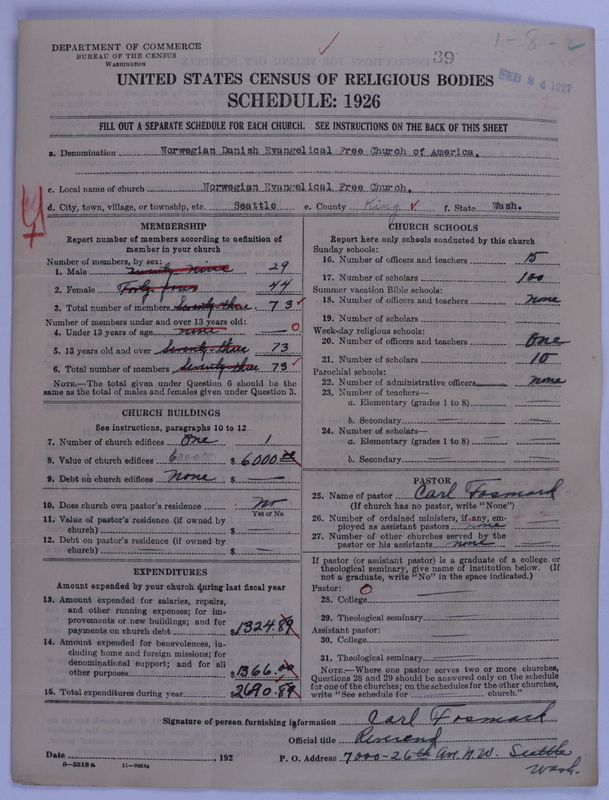 DEPARTMENT OF COMMERCE
BUREAU OF THE CENSUS
WASHINGTON
39
1-8-2
FEB 24 1927
UNITED STATES CENSUS OF RELIGIOUS BODIES
SCHEDULE: 1926
FILL OUT A SEPARATE SCHEDULE FOR EACH CHURCH. SEE INSTRUCTIONS ON THE BACK OF THIS SHEET
a. Denomination Norwegian Danish Evangelical Free Church of America.
c. Local name of church Norwegian Evangelical Free Church.
d. City, town, village, or township, etc. Seattle e. County King f. State Wash.
MEMBERSHIP
Report number of members according to definition of
member in your church
Number of members, by sex:
1. Male twenty nine 29
2. Female Forty four 44
3. Total number of members Seventy three 73
Number of members under and over 13 years old:
4. Under 13 years of age none — 0
5. 13 years old and over Seventy three 73
6. Total number of members Seventy three 73
NOTE.—The total given under Question 6 should be the
same as the total of males and females given under Question 3.
CHURCH BUILDINGS
See instructions, paragraphs 10 to 12
7. Number of church edifices One 1
8. Value of church edifices $ 6000.00
9. Debt on church edifices None $ —
10. Does church own pastor's residence No
Yes or No
11. Value of pastor's residence (if owned by
church) $ —
12. Debt on pastor's residence (if owned by
church) $ —
EXPENDITURES
Amount expended by your church during last fiscal year
13. Amount expended for salaries, repairs,
and other running expenses; for im-
provements or new buildings; and for
payments on church debt $1324.89
14. Amount expended for benevolences, in-
cluding home and foreign missions; for
denominational support; and for all
other purposes $1366.00
15. Total expenditures during year $2690.89
CHURCH SCHOOLS
Report here only schools conducted by this church
Sunday schools:
16. Number of officers and teachers 15
17. Number of scholars 100
Summer vacation Bible schools:
18. Number of officers and teachers none
19. Number of scholars
Week-day religious schools:
20. Number of officers and teachers One
21. Number of scholars 10
Parochial schools:
22. Number of administrative officers none
23. Number of teachers—
a. Elementary (grades 1 to 8)
b. Secondary
24. Number of scholars—
a. Elementary (grades 1 to 8)
b. Secondary
PASTOR
25. Name of pastor Carl Fosmark
(If church has no pastor, write "None")
26. Number of ordained ministers, if any, em-
ployed as assistant pastors none
27. Number of other churches served by the
pastor or his assistants none
If pastor (or assistant pastor) is a graduate of a college or
theological seminary, give name of institution below. (If
not a graduate, write "No" in the space indicated.)
Pastor: O
28. College
29. Theological seminary
Assistant pastor:
30. College
31. Theological seminary
NOTE.—Where one pastor serves two or more churches,
Questions 28 and 29 should be answered only on the schedule
for one of the churches; on the schedules for the other churches,
write "See schedule for church."
Signature of person furnishing information Carl Fosmark
Official title Reverend
Date , 192 P. O. Address 7000-26th Av. N.W. Seattle
Wash.
8-5518a